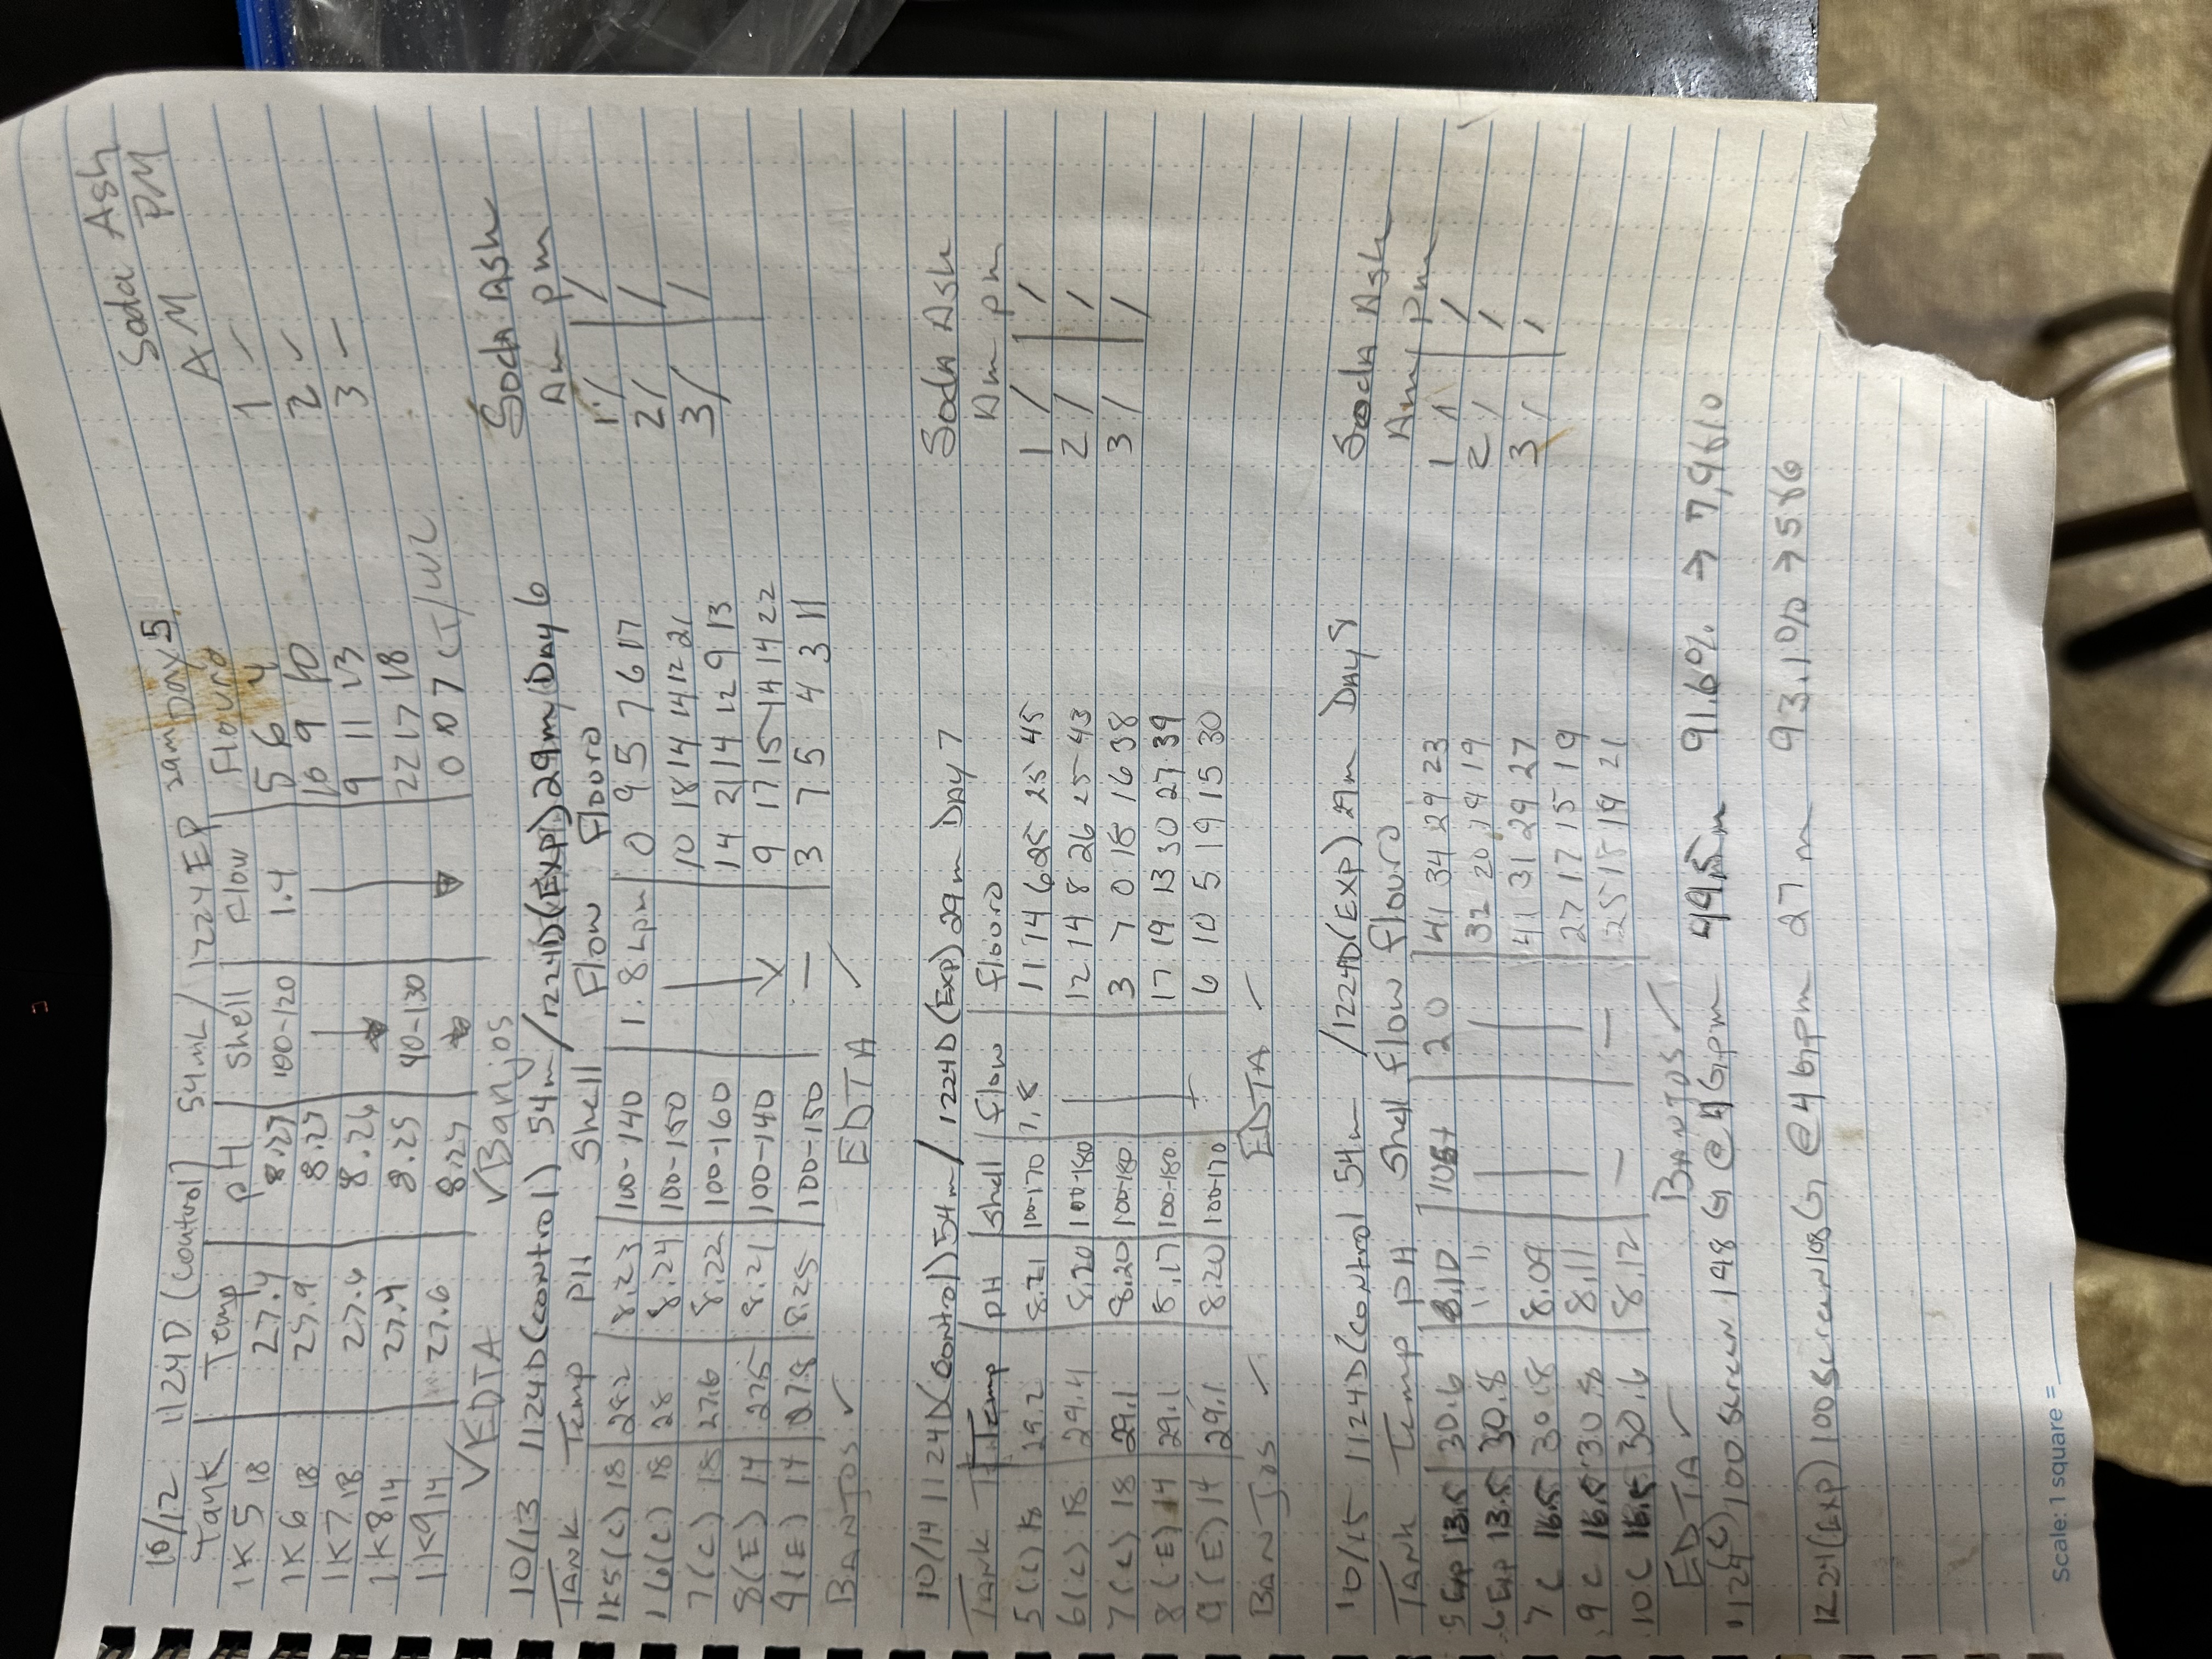 10/12 1124D (Control) 54mL / 1224EP 29m Day 5
Soda Ash
AM PM
Tank Temp pH Shell Flow Flouro
1K5 18 27.4 8.27 100-120 1.4 5 6 4
1 -
1K6 18 8.27 10 9 10
2 ✓
1K7 18 27.6 8.26 9 11 13
3 -
1K8 14 27.4 8.25 90-130 22 17 18
1K9 14 27.6 8.25 0 0 7 CT/WL
✓EDTA ✓Banjos
10/13 1124D(control) 54m/1224D(EXP) 29m/Day 6
Soda Ash
Am pm
Tank Temp PH Shell Flow Flouro
1K5(C) 18 28.2 8.23 100-140 1.8Lpm 0 9 5 7 6 17
1 / /
1 6(C) 18 28 8.24 100-150 10 18 14 14 12 21
2 / /
7(C) 18 27.6 8.22 100-160 14 21 14 12 9 13
3 / /
8(E) 14 27.5 8.21 100-140 9 17 15 14 14 22
9(E) 14 27.8 8.25 100-150 - 3 7 5 4 3 11
BANJOS ✓ EDTA ✓
10/14 1124D(Control) 54m/ 1224D(EXP) 29m DAY 7
Soda Ash
Am pm
TANK Temp pH Shell flow flouro
5(C) 18 29.2 8.21 100-170 1.8 11 14 6 25 25 45
1 / /
6(C) 18 29.4 8.20 100-180 12 14 8 26 25 43
2 / /
7(C) 18 29.1 8.20 100-180 3 7 0 18 16 38
3 / /
8(E) 14 29.1 8.17 100-180 17 19 13 30 27 39
9(E) 14 29.1 8.20 100-170 6 10 5 19 15 30
BANJOS ✓ EDTA ✓
10/15 1124D(Control 54m /1224D(EXP) 29m DAY 8
Soda Ash
Am pm
TANK Temp PH Shell flow flouro
5 Exp 13.5 30.6 8.10 105+ 20 41 34 29 23
1 / /
6 Exp 13.5 30.8 " " 32 20 19 19
2 / /
7 C 16.5 30.8 8.09 41 31 29 27
3 / /
9 C 16.5 30.8 8.11 27 17 15 19
10 C 16.5 30.6 8.12 - - 25 15 19 21
EDTA ✓ BANJOS ✓
1124(C) 100 Screen 198 G @ 4Gpm 49.5m 91.6% →
1224(EXP) 100 Screen 108 G @ 4Gpm 27m 93.1% → 586
Scale: 1 square =